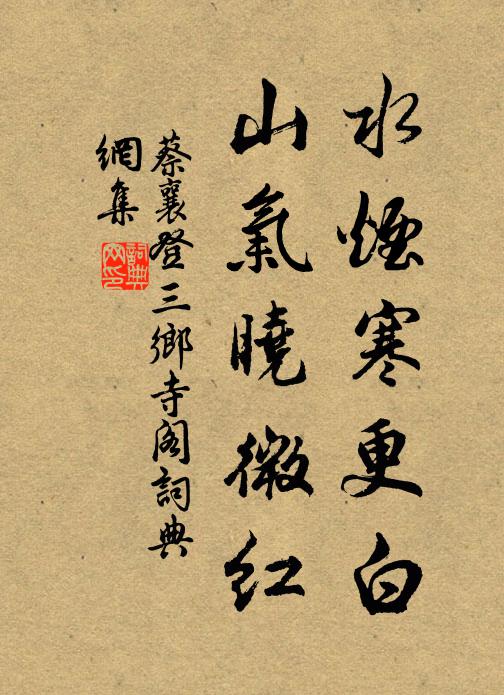 水煙寒更白
山氣曉微红
蔡襄登三鄉寺閣詞典
網集
詞典
网印